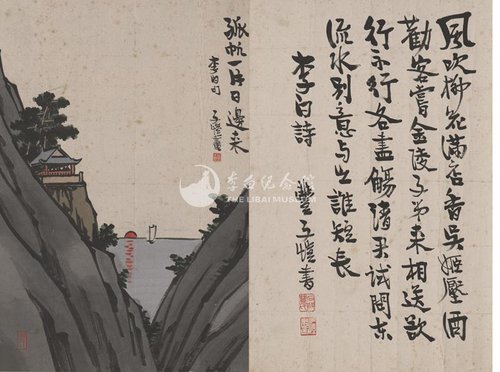 風吹柳花滿店香吳姬壓酒
勸客嘗金陵子弟来相送欲
行不行各盡觴請君試問東
流水別意与之誰短長
李白詩 豐子愷書
孤帆一片日邊来
李白句 子愷畫
李白纪念馆
THE LIBAI MUSEUM